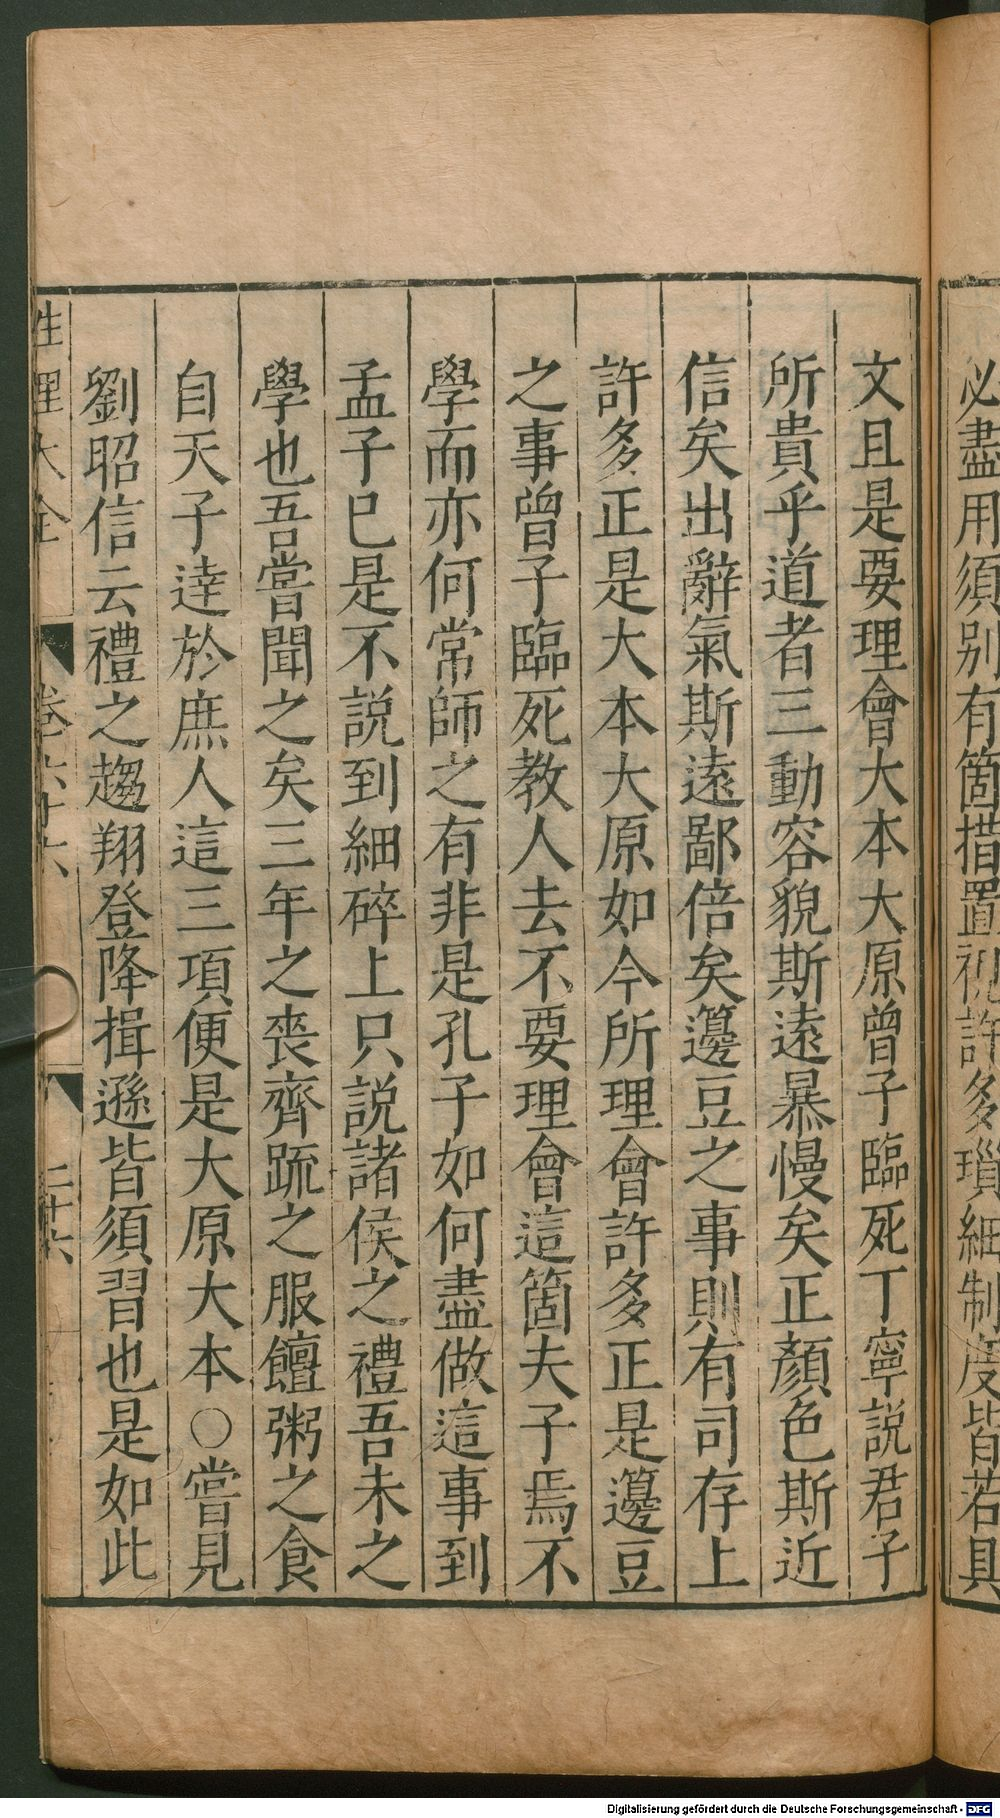 必盡用須别有箇措置視許多瑣細制度皆若具
文且是要理會大本大原曾子臨死丁寧説君子
所貴乎道者三動容貌斯遠暴慢矣正顏色斯近
信矣出辭氣斯遠鄙倍矣籩豆之事則有司存上
許多正是大本大原如今所理會許多正是籩豆
之事曾子臨死教人去不要理會這箇夫子焉不
學而亦何常師之有非是孔子如何盡做這事到
孟子已是不説到細碎上只説諸侯之禮吾未之
學也吾嘗聞之矣三年之喪齊䟽之服饘粥之食
自天子達於庶人這三項便是大原大本○嘗見
劉昭信云禮之趨翔登降揖遜皆須習也是如此
性理大全 卷六十六 二十六
Digitalisierung gefördert durch die Deutsche Forschungsgemeinschaft - DFG